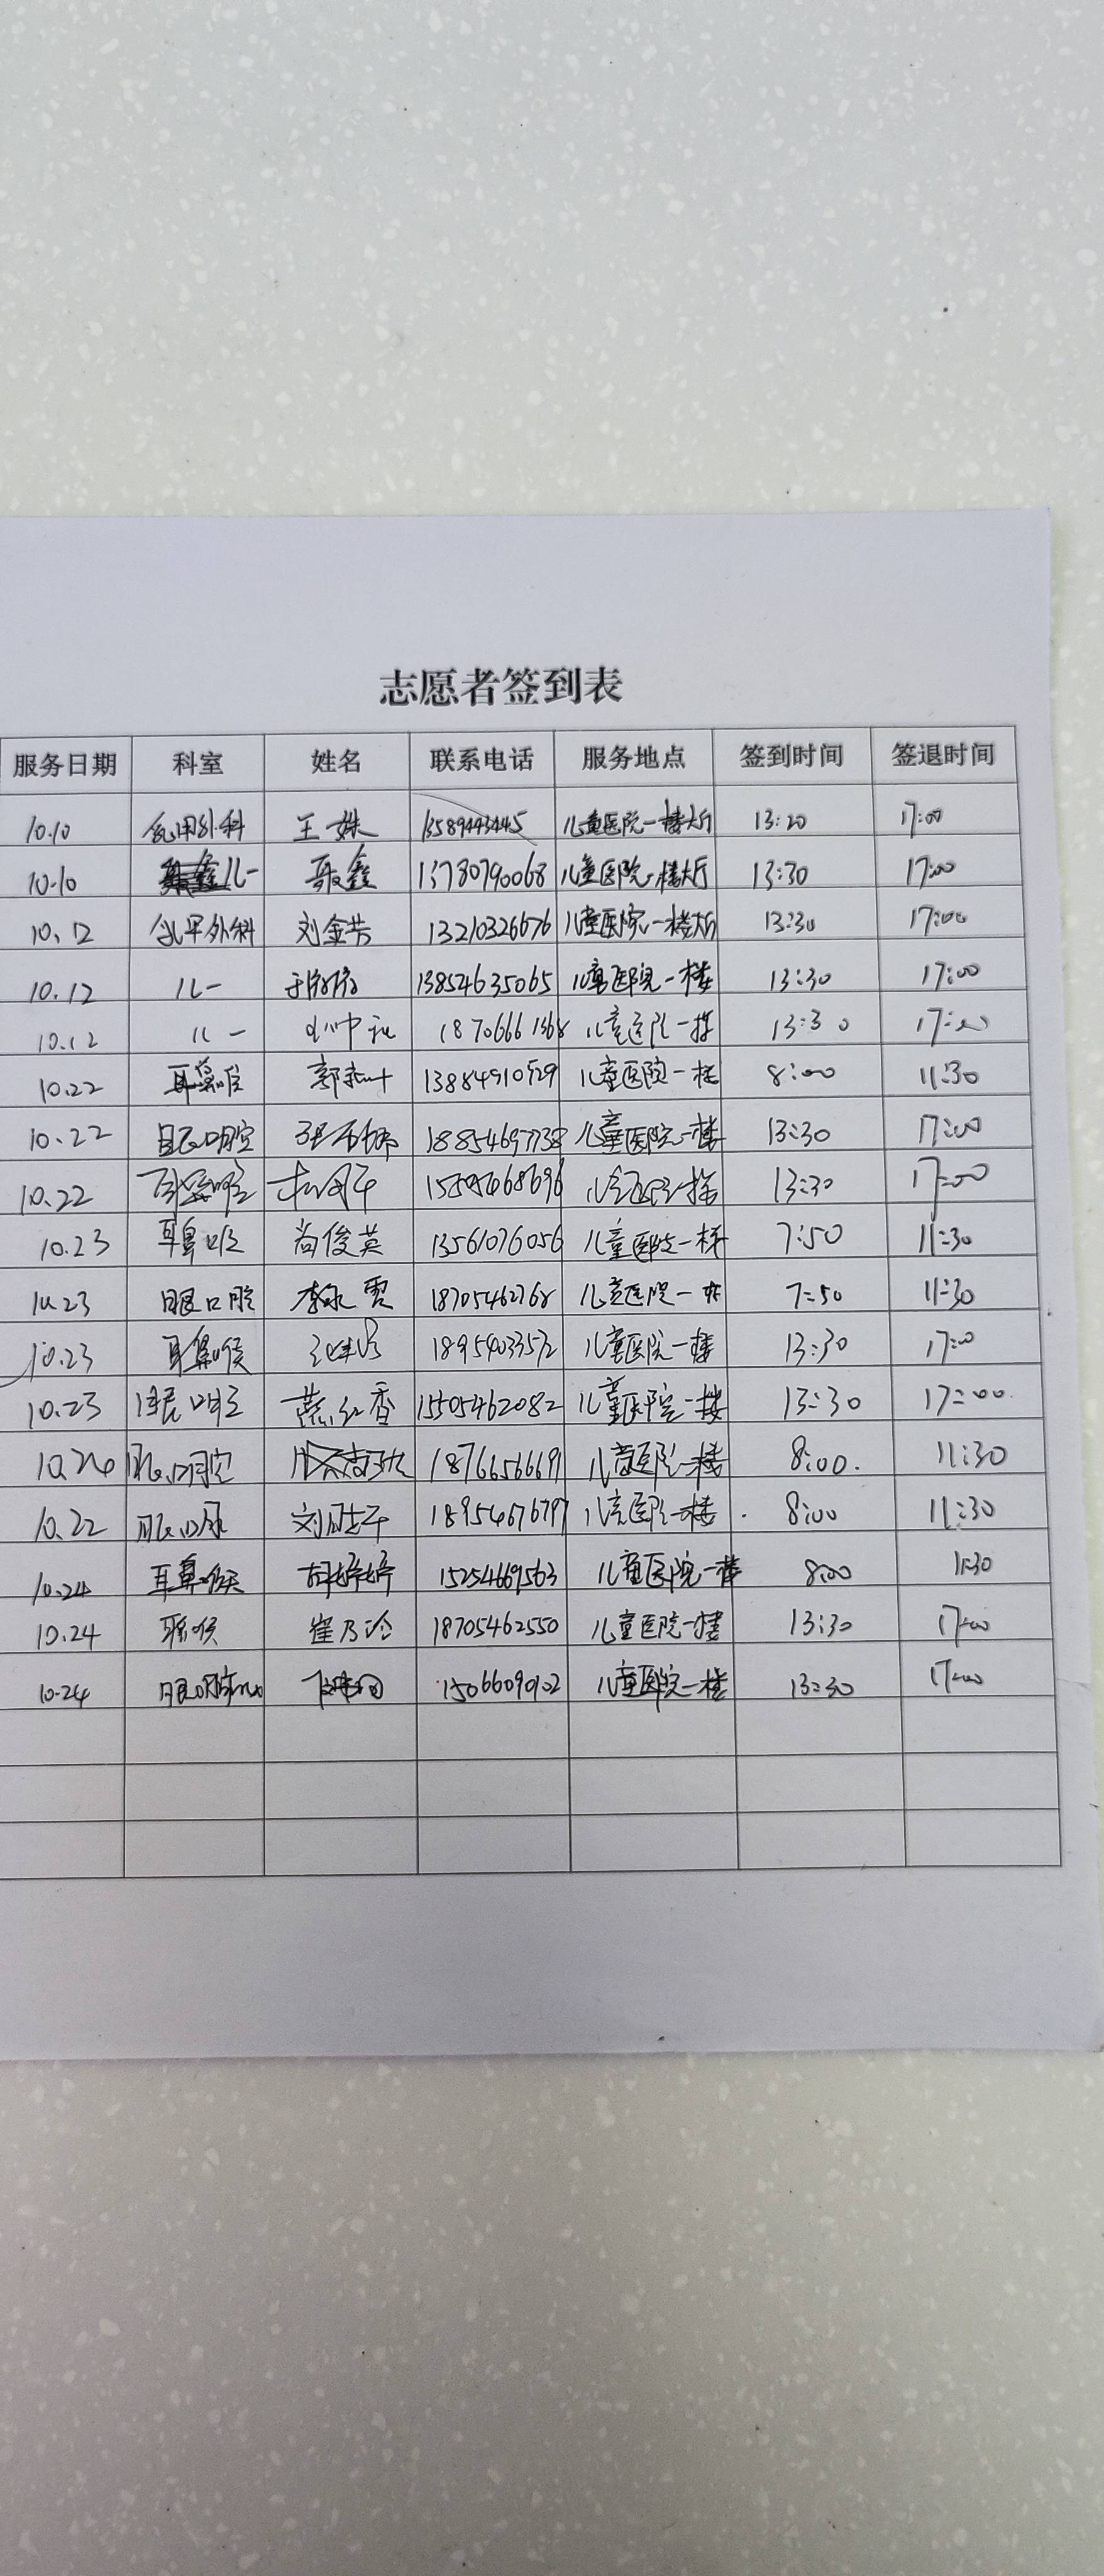 志愿者签到表
服务日期 科室 姓名 联系电话 服务地点 签到时间 签退时间
10.10 外科 王姝 13589443445 儿童医院一楼大厅 13:20 17:00
10.10 儿一 鑫 13780790068 儿童医院一楼大厅 13:30 17:00
10.12 外科 刘金芳 13210326676 儿童医院一楼大厅 13:30 17:00
10.12 儿一 13854635065 儿童医院一楼 13:30 17:00
10.12 儿一 18706661368 儿童医院一楼 13:30 17:00
10.22 耳鼻喉 郭 13884910929 儿童医院一楼 8:00 11:30
10.22 眼口腔 18854697738 儿童医院一楼 13:30 17:00
10.22 耳鼻喉 儿童医院一楼 13:30 17:00
10.23 耳鼻喉 尚俊英 13561076056 儿童医院一楼 7:50 11:30
10.23 眼口腔 李永霞 18705462768 儿童医院一楼 7:50 11:30
10.23 耳鼻喉 18954033572 儿童医院一楼 13:30 17:00
10.23 眼口腔 燕红香 15505462082 儿童医院一楼 13:30 17:00
10.24 眼口腔 18766566691 儿童医院一楼 8:00 11:30
10.22 眼口腔 刘 18954676797 儿童医院一楼 8:00 11:30
10.24 耳鼻喉 胡婷婷 15254669563 儿童医院一楼 8:00 11:30
10.24 崔乃 18705462550 儿童医院一楼 13:30 17:00
10.24 眼口腔 15066090102 儿童医院一楼 13:30 17:00